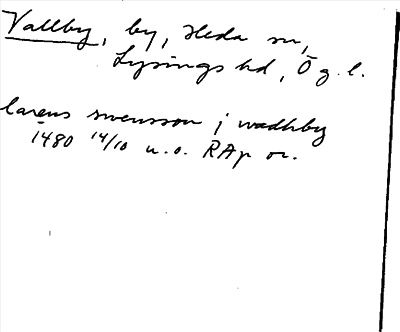 Vallby, by, Heda sn,
Lysings hd, Ög. l.
larens swensson j wadhby
1480 14/10 u.o. RAp or.